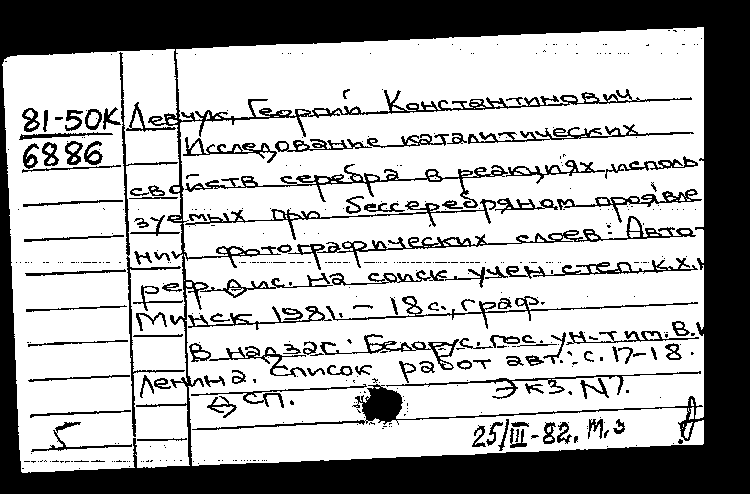 81-50К Левчук, Георгий Константинович.
6886 Исследование каталитических
свойств серебра в реакциях, исполь-
зуемых при бессеребряном проявле
нии фотографических слоев: Авто
реф. дис. на соиск. учен. степ. к.х.н
Минск, 1981. – 18 с., граф.
В надзаг.: Белорус. гос. ун-т им. В.И
Ленина. Список работ авт.: с. 17-18.
СП. Экз. N1.
5 25/III-82. т.з